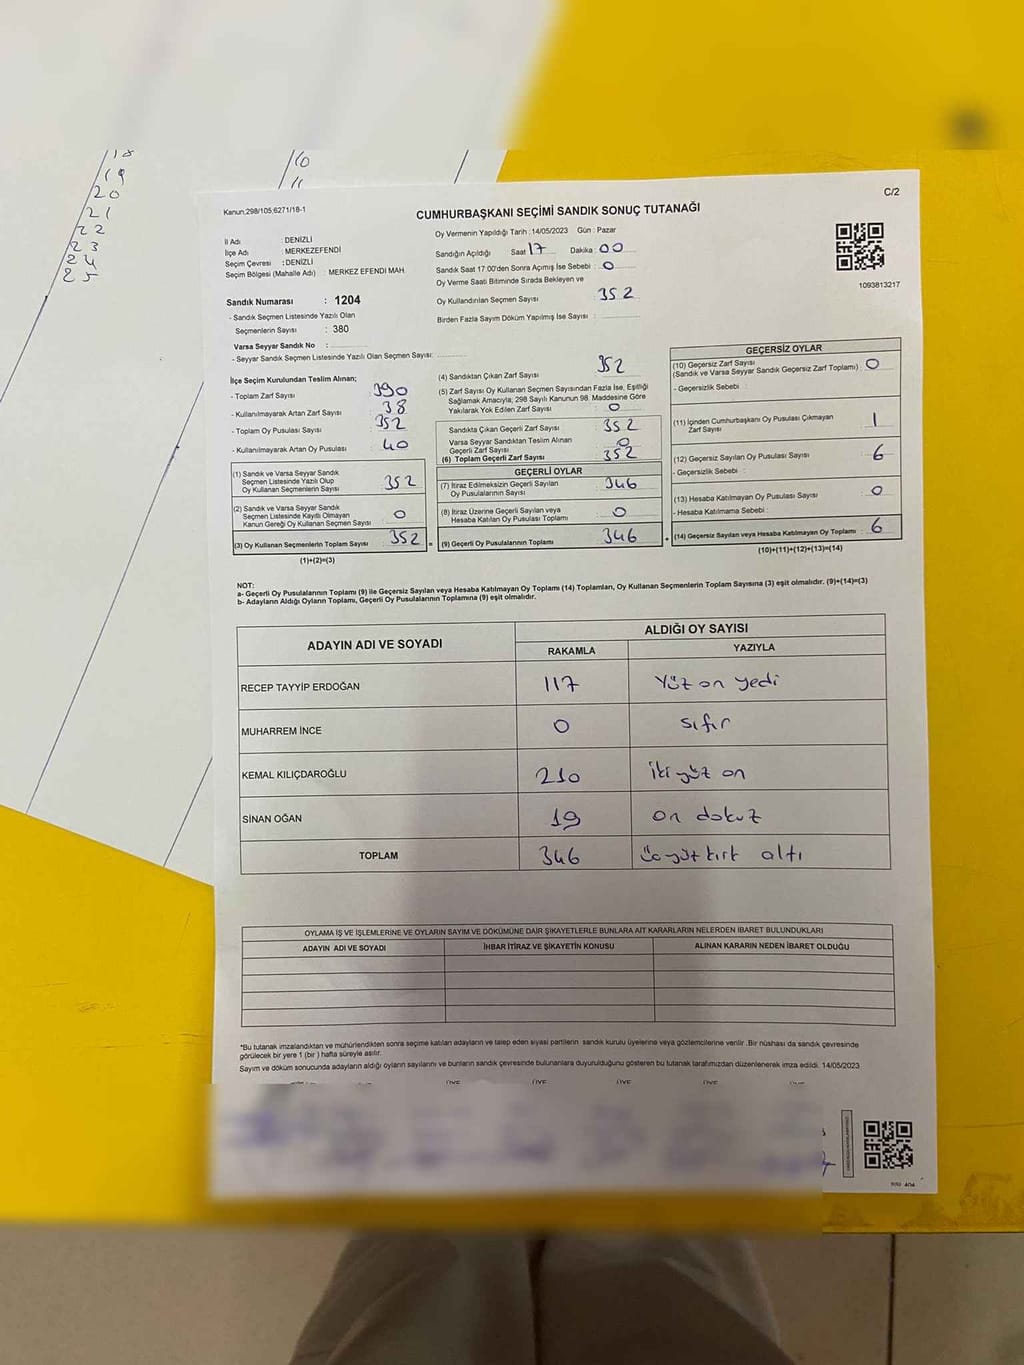 18
19
20
21
22
23
24
25
10
11
C/2
Kanun,298/105,6271/18-1
CUMHURBAŞKANI SEÇİMİ SANDIK SONUÇ TUTANAĞI
İl Adı : DENİZLİ
İlçe Adı : MERKEZEFENDİ
Seçim Çevresi : DENİZLİ
Seçim Bölgesi (Mahalle Adı) : MERKEZ EFENDİ MAH.
Sandık Numarası : 1204
- Sandık Seçmen Listesinde Yazılı Olan
Seçmenlerin Sayısı : 380
Varsa Seyyar Sandık No :
- Seyyar Sandık Seçmen Listesinde Yazılı Olan Seçmen Sayısı:
Oy Vermenin Yapıldığı Tarih : 14/05/2023 Gün : Pazar
Sandığın Açıldığı Saat 17 Dakika 00
Sandık Saat 17:00'den Sonra Açımış İse Sebebi : 0
Oy Verme Saati Bitiminde Sırada Bekleyen ve
Oy Kullandırılan Seçmen Sayısı : 352
Birden Fazla Sayım Döküm Yapılmış İse Sayısı :
1093813217
İlçe Seçim Kurulundan Teslim Alınan;
- Toplam Zarf Sayısı : 390
- Kullanılmayarak Artan Zarf Sayısı : 38
- Toplam Oy Pusulası Sayısı : 352
- Kullanılmayarak Artan Oy Pusulası : 40
(1) Sandık ve Varsa Seyyar Sandık
Seçmen Listesinde Yazılı Olup
Oy Kullanan Seçmenlerin Sayısı : 352
(2) Sandık ve Varsa Seyyar Sandık
Seçmen Listesinde Kayıtlı Olmayan
Kanun Gereği Oy Kullanan Seçmen Sayısı : 0
(3) Oy Kullanan Seçmenlerin Toplam Sayısı : 352 =
(1)+(2)=(3)
(4) Sandıktan Çıkan Zarf Sayısı : 352
(5) Zarf Sayısı Oy Kullanan Seçmen Sayısından Fazla İse, Eşitliği
Sağlamak Amacıyla; 298 Sayılı Kanunun 98. Maddesine Göre
Yakılarak Yok Edilen Zarf Sayısı : 0
Sandıkta Çıkan Geçerli Zarf Sayısı : 352
Varsa Seyyar Sandıktan Teslim Alınan
Geçerli Zarf Sayısı : 0
(6) Toplam Geçerli Zarf Sayısı : 352
GEÇERLİ OYLAR
(7) İtiraz Edilmeksizin Geçerli Sayılan
Oy Pusulalarının Sayısı : 346
(8) İtiraz Üzerine Geçerli Sayılan veya
Hesaba Katılan Oy Pusulası Toplamı : 0
(9) Geçerli Oy Pusulalarının Toplamı : 346 +
GEÇERSİZ OYLAR
(10) Geçersiz Zarf Sayısı
(Sandık ve Varsa Seyyar Sandık Geçersiz Zarf Toplamı) : 0
- Geçersizlik Sebebi :
(11) İçinden Cumhurbaşkanı Oy Pusulası Çıkmayan
Zarf Sayısı : 1
(12) Geçersiz Sayılan Oy Pusulası Sayısı : 6
- Geçersizlik Sebebi :
(13) Hesaba Katılmayan Oy Pusulası Sayısı : 0
- Hesaba Katılmama Sebebi :
(14) Geçersiz Sayılan veya Hesaba Katılmayan Oy Toplamı : 6
(10)+(11)+(12)+(13)=(14)
NOT:
a- Geçerli Oy Pusulalarının Toplamı (9) ile Geçersiz Sayılan veya Hesaba Katılmayan Oy Toplamı (14) Toplamları, Oy Kullanan Seçmenlerin Toplam Sayısına (3) eşit olmalıdır. (9)+(14)=(3)
b- Adayların Aldığı Oyların Toplamı, Geçerli Oy Pusulalarının Toplamına (9) eşit olmalıdır.
ADAYIN ADI VE SOYADI
ALDIĞI OY SAYISI
RAKAMLA YAZIYLA
RECEP TAYYİP ERDOĞAN 117 Yüz on yedi
MUHARREM İNCE 0 sıfır
KEMAL KILIÇDAROĞLU 210 iki yüz on
SİNAN OĞAN 19 on dokuz
TOPLAM 346 üç yüz kırk altı
OYLAMA İŞ VE İŞLEMLERİNE VE OYLARIN SAYIM VE DÖKÜMÜNE DAİR ŞİKAYETLERLE BUNLARA AİT KARARLARIN NELERDEN İBARET BULUNDUKLARI
ADAYIN ADI VE SOYADI İHBAR İTİRAZ VE ŞİKAYETİN KONUSU ALINAN KARARIN NEDEN İBARET OLDUĞU
*Bu tutanak imzalandıktan ve mühürlendikten sonra seçime katılan adayların ve talep eden siyasi partilerin sandık kurulu üyelerine veya gözlemcilerine verilir .Bir nüshası da sandık çevresinde
görülecek bir yere 1 (bir ) hafta süreyle asılır.
Sayım ve döküm sonucunda adayların aldığı oyların sayılarını ve bunların sandık çevresinde bulunanlara duyurulduğunu gösteren bu tutanak tarafımızdan düzenlenerek imza edildi. 14/05/2023
ÜYE ÜYE ÜYE ÜYE ÜYE